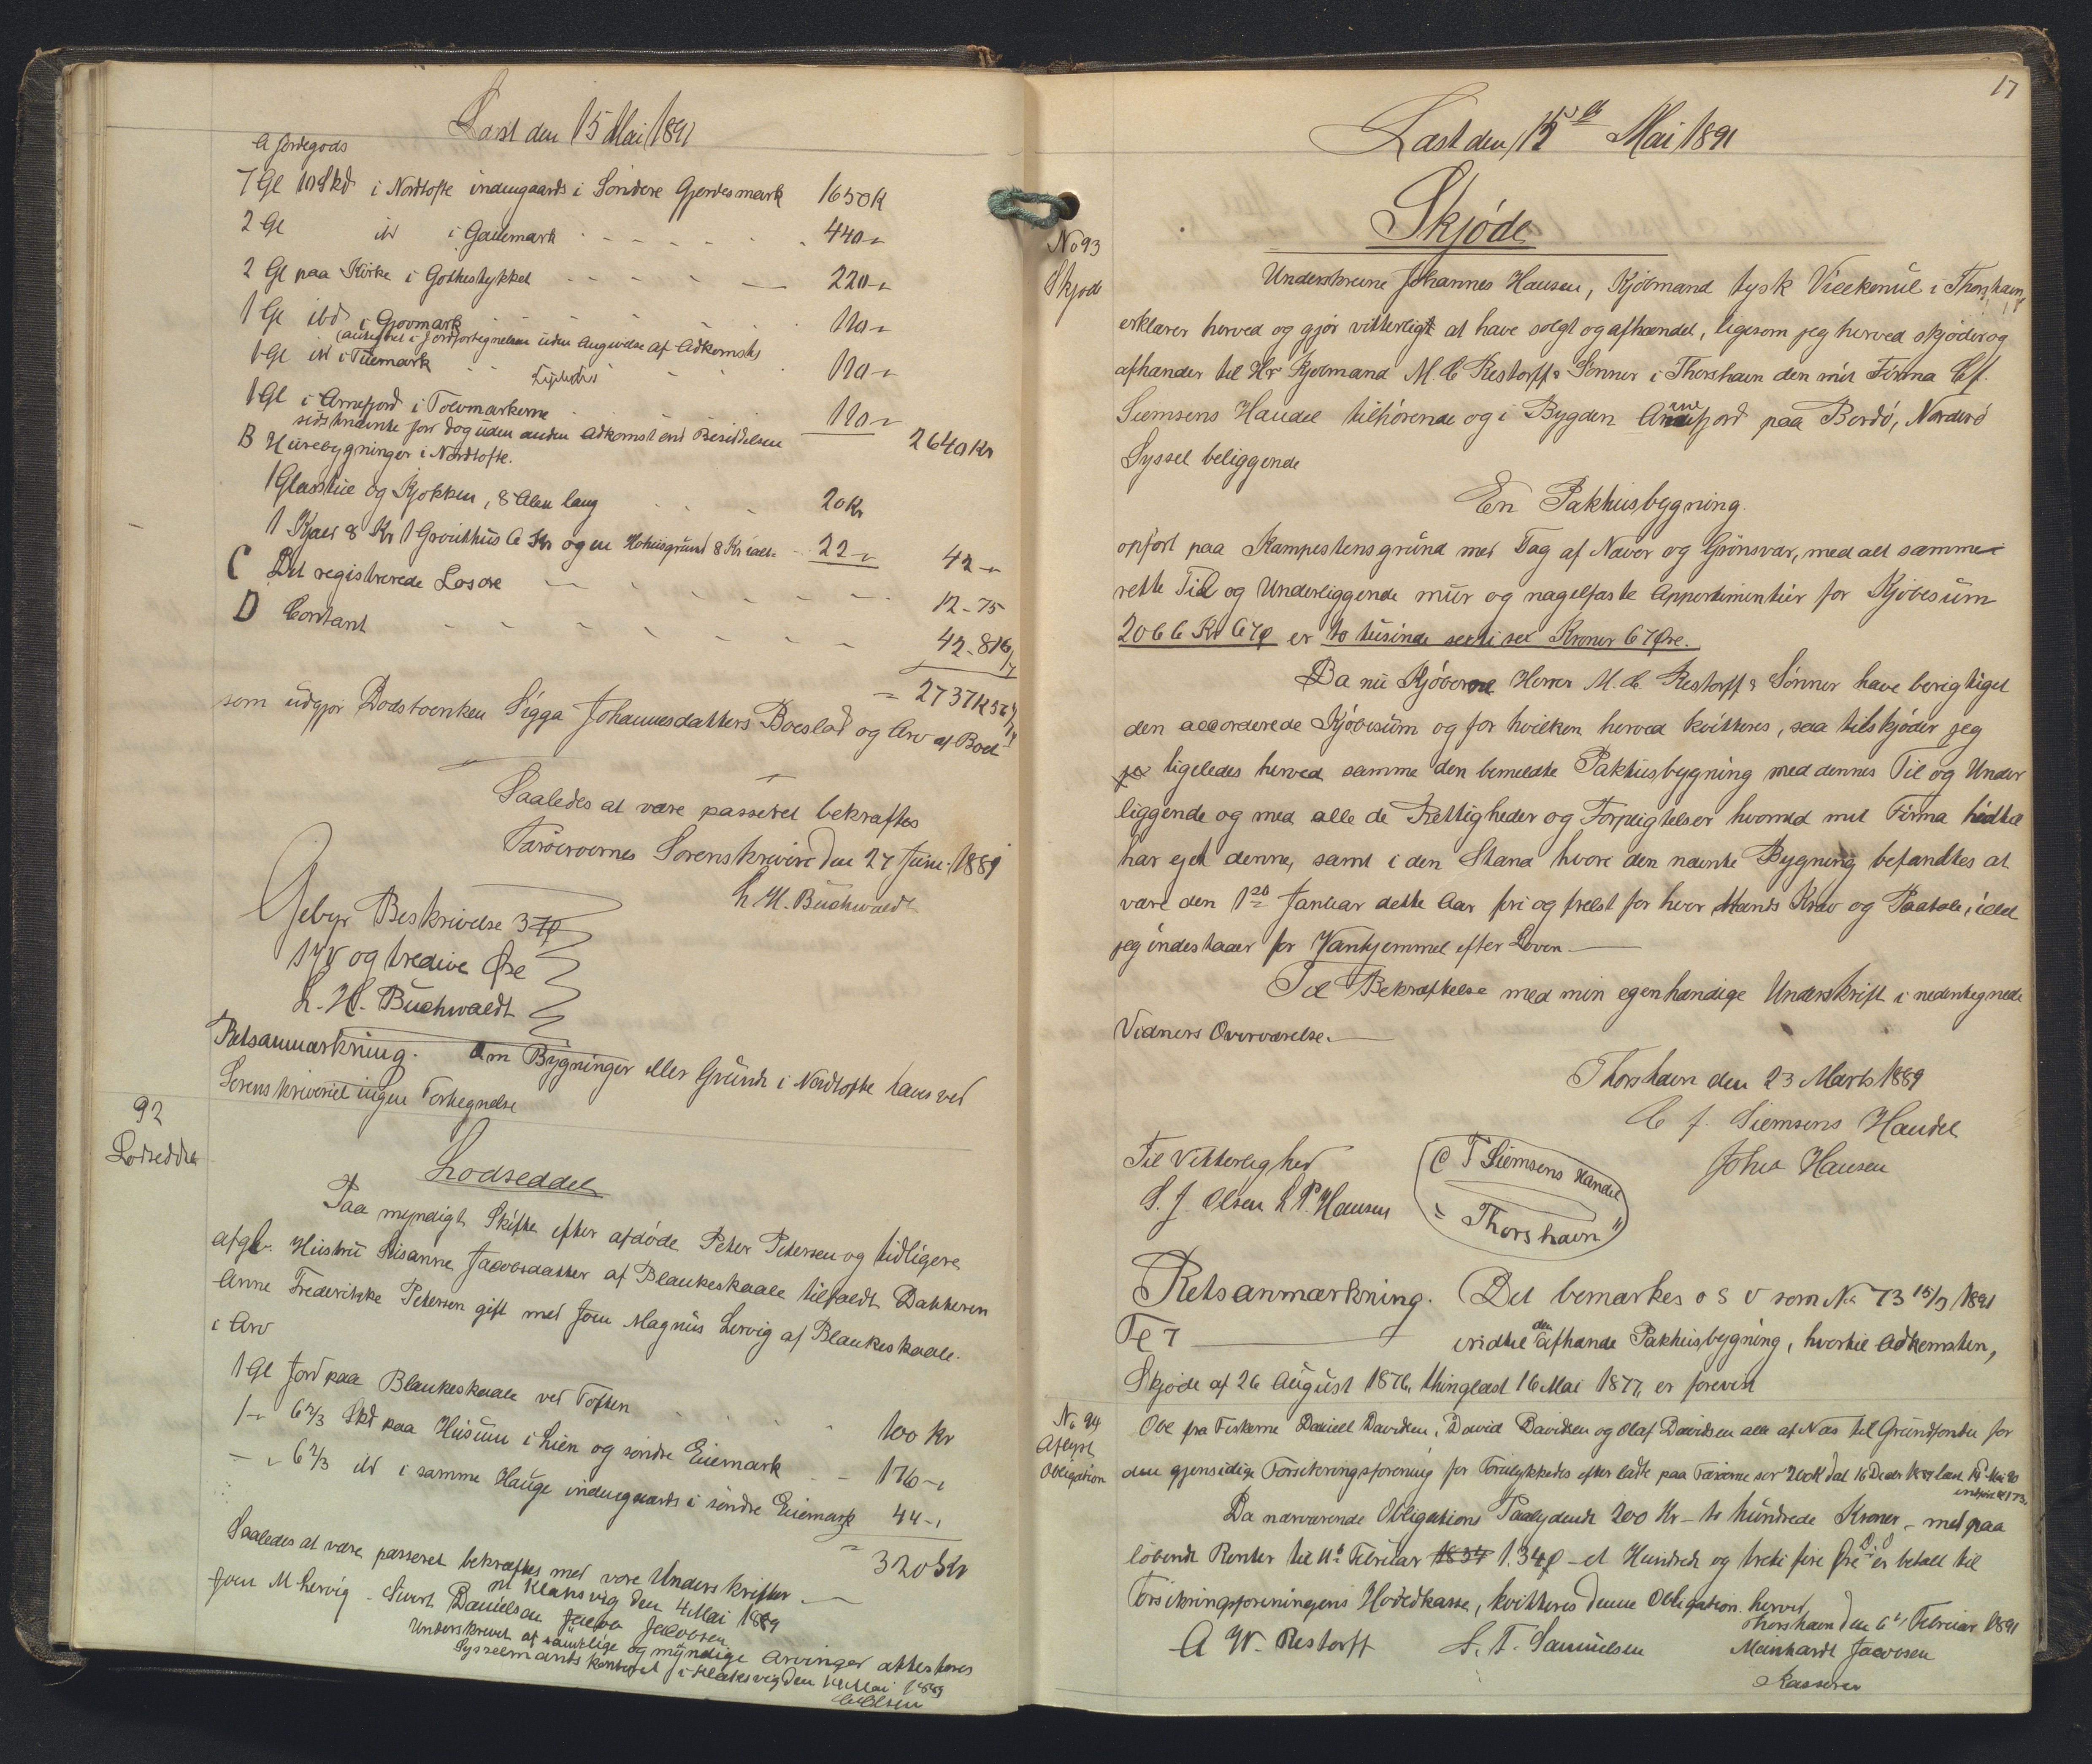 Læst den 15 Mai 1891
A Jordegods
7 Gl 10 Skd i Nordtofte indengaards i Söndere Gjerdesmark 1650 K
2 Gl id i Gaulemark 440 "
2 Gl paa Kirke i Gotkestykket 220 "
1 Gl ibd i Grovmark 110 "
(anseted i Jordfortegnelsen uden Angivelse af Adkomst)
1 Gl id i Tuemark Ligeledes 110 "
1 Gl i Arnefjord i Toevmarkerne 110 "
sidstnævnte Jord dog uden anden Adkomst end Besiddelsen 2640 Kr
B Husebygninger i Nordtofte.
1 Glasstue og Kjökken, 8 Alen lang 20 Kr
1 Kjaes 8 Kr 1 Grouthus 6 Kr og en Hohusgrund 8 Kr ialt 22 " 42 "
C Det registrerede Lösöre 12-75
D Contant 42-81 6/7
= 2737 K 56 6/7
som udgjör Dödsboenken Sigga Johannesdatters Boeslod og Arv af Boet
Saaledes at være passeret bekræftes
Færöernes Sorenskriveri den 27 Juni 1889
L. H. Buchwaldt
Gebyr Beskrivelse 37 Ø
syv og tredive Øre
L. H. Buchwaldt
Retsanmærkning. Om Bygninger eller Grunde i Nordtofte haves ved
Sorenskriveriet ingen Fortegnelse
92
Lodseddel
Lodseddel
Paa myndigt Skifte efter afdöde Peter Petersen og tidligere
afg. Hustru Susanne Jacobsdatter af Blankeskaale tilfaldt Datteren
Anne Frederikke Petersen gift med Joen Magnus Lervig af Blankeskaale
i Arv
1 Gl Jord paa Blankeskaale ved Toften 100 Kr
1 " 6 2/3 Skd paa Husum i Lien og söndre Eiemark 176 "
" " 6 2/3 id i samme Hauge indengaards i söndre Eiemark 44 "
= 320 Kr
Saaledes at være passeret bekræftes med vore Underskrifter
pt Klaksvig den 4 Mai 1889
Joen M Lervig Sivert Danielsen Jacob Jacobsen
Underskrevet af samtlige og myndige Arvinger attesteres
Sysselmands kontoret i Klaksvig den 14 Mai 1889
Olsen
17
Læst den 15de Mai 1891
Skjöde
No 93
Skjöde
Underskrevne Johannes Hansen, Kjöbmand tysk Vicekonsul i Thorshavn,
erklærer herved og gjör vitterligt at have solgt og afhændet, ligesom jeg herved skjöder og
afhænder til Hr Kjöbmand M. C. Restorff & Sönner i Thorshavn den mit Firma C. f.
Siemsens Handel tilhörende og i Bygden Arnefjord paa Bordö, Norderö
Syssel beliggende
En Pakhusbygning
opfört paa Kampestensgrund med Tag af Næver og Grönsvær, med alt sammes
rette Til og Underliggende mur og nagelfaste Appertinentier for Kjöbesum
2066 Kr 67 Ø er to tusinde sexti sex Kroner 67 Øre.
Da nu Kjöberne Herrer M. C. Restorff & Sönner have berigtiget
den accorderede Kjöbesum og for hvilken herved kvitteres, saa tilskjöder jeg
ligeledes herved samme den bemeldte Pakhusbygning med dennes Til og Under
liggende og med alle de Rettigheder og Forpligtelser hvormed mit Firma hidtil
har ejet denne, samt i den Stand hvori den nævnte Bygning befandtes at
være den 1ste Januar dette Aar fri og frelst for hver Mands Krav og Paatale, idet
jeg indestaaer for Vanhjemmel efter Loven
Til Bekræftelse med min egenhændige Underskrift i nedentegnede
Vidners Overværelse.
Thorshavn den 23 Marts 1889
C f. Siemsens Handel
Johs Hansen
Til Vitterlighed
S. J. Olsen L P. Hansen
C F Siemsens Handel
" Thorshavn "
Retsanmærkning. Det bemærkes o s v som No 73 15/5 1891
Fol 7 indtil den afhændte Pakhusbygning, hvortil Adkomsten,
Skjöde af 26 August 1876, thinglæst 16 Mai 1877, er forevist
No 94
Aflyst
Obligation
Obl fra Fiskerne Daniell Davidsen, David Davidsen og Olaf Davidsen alle af Næs til Grundfonden for
den gjensidige Forsikringsforening for Forulykkedes efterladte paa Færöerne for 200 K dat 16 Decbr 1889 læst 19 Mai 90
Da nærværende Obligations Paalydende 200 Kr - to hundrede Kroner - med paa
löbende Renter til 11te Februar 1.34 Ø - et Hundrede og treti fire Øre D. D. er betalt til
Forsikringsforeningens Hovedkasse, kvitteres denne Obligation herved
Thorshavn den 6te Februar 1891
A W. Restorff S. T. Samuelsen Mainhardt Jacobsen
Kasserer